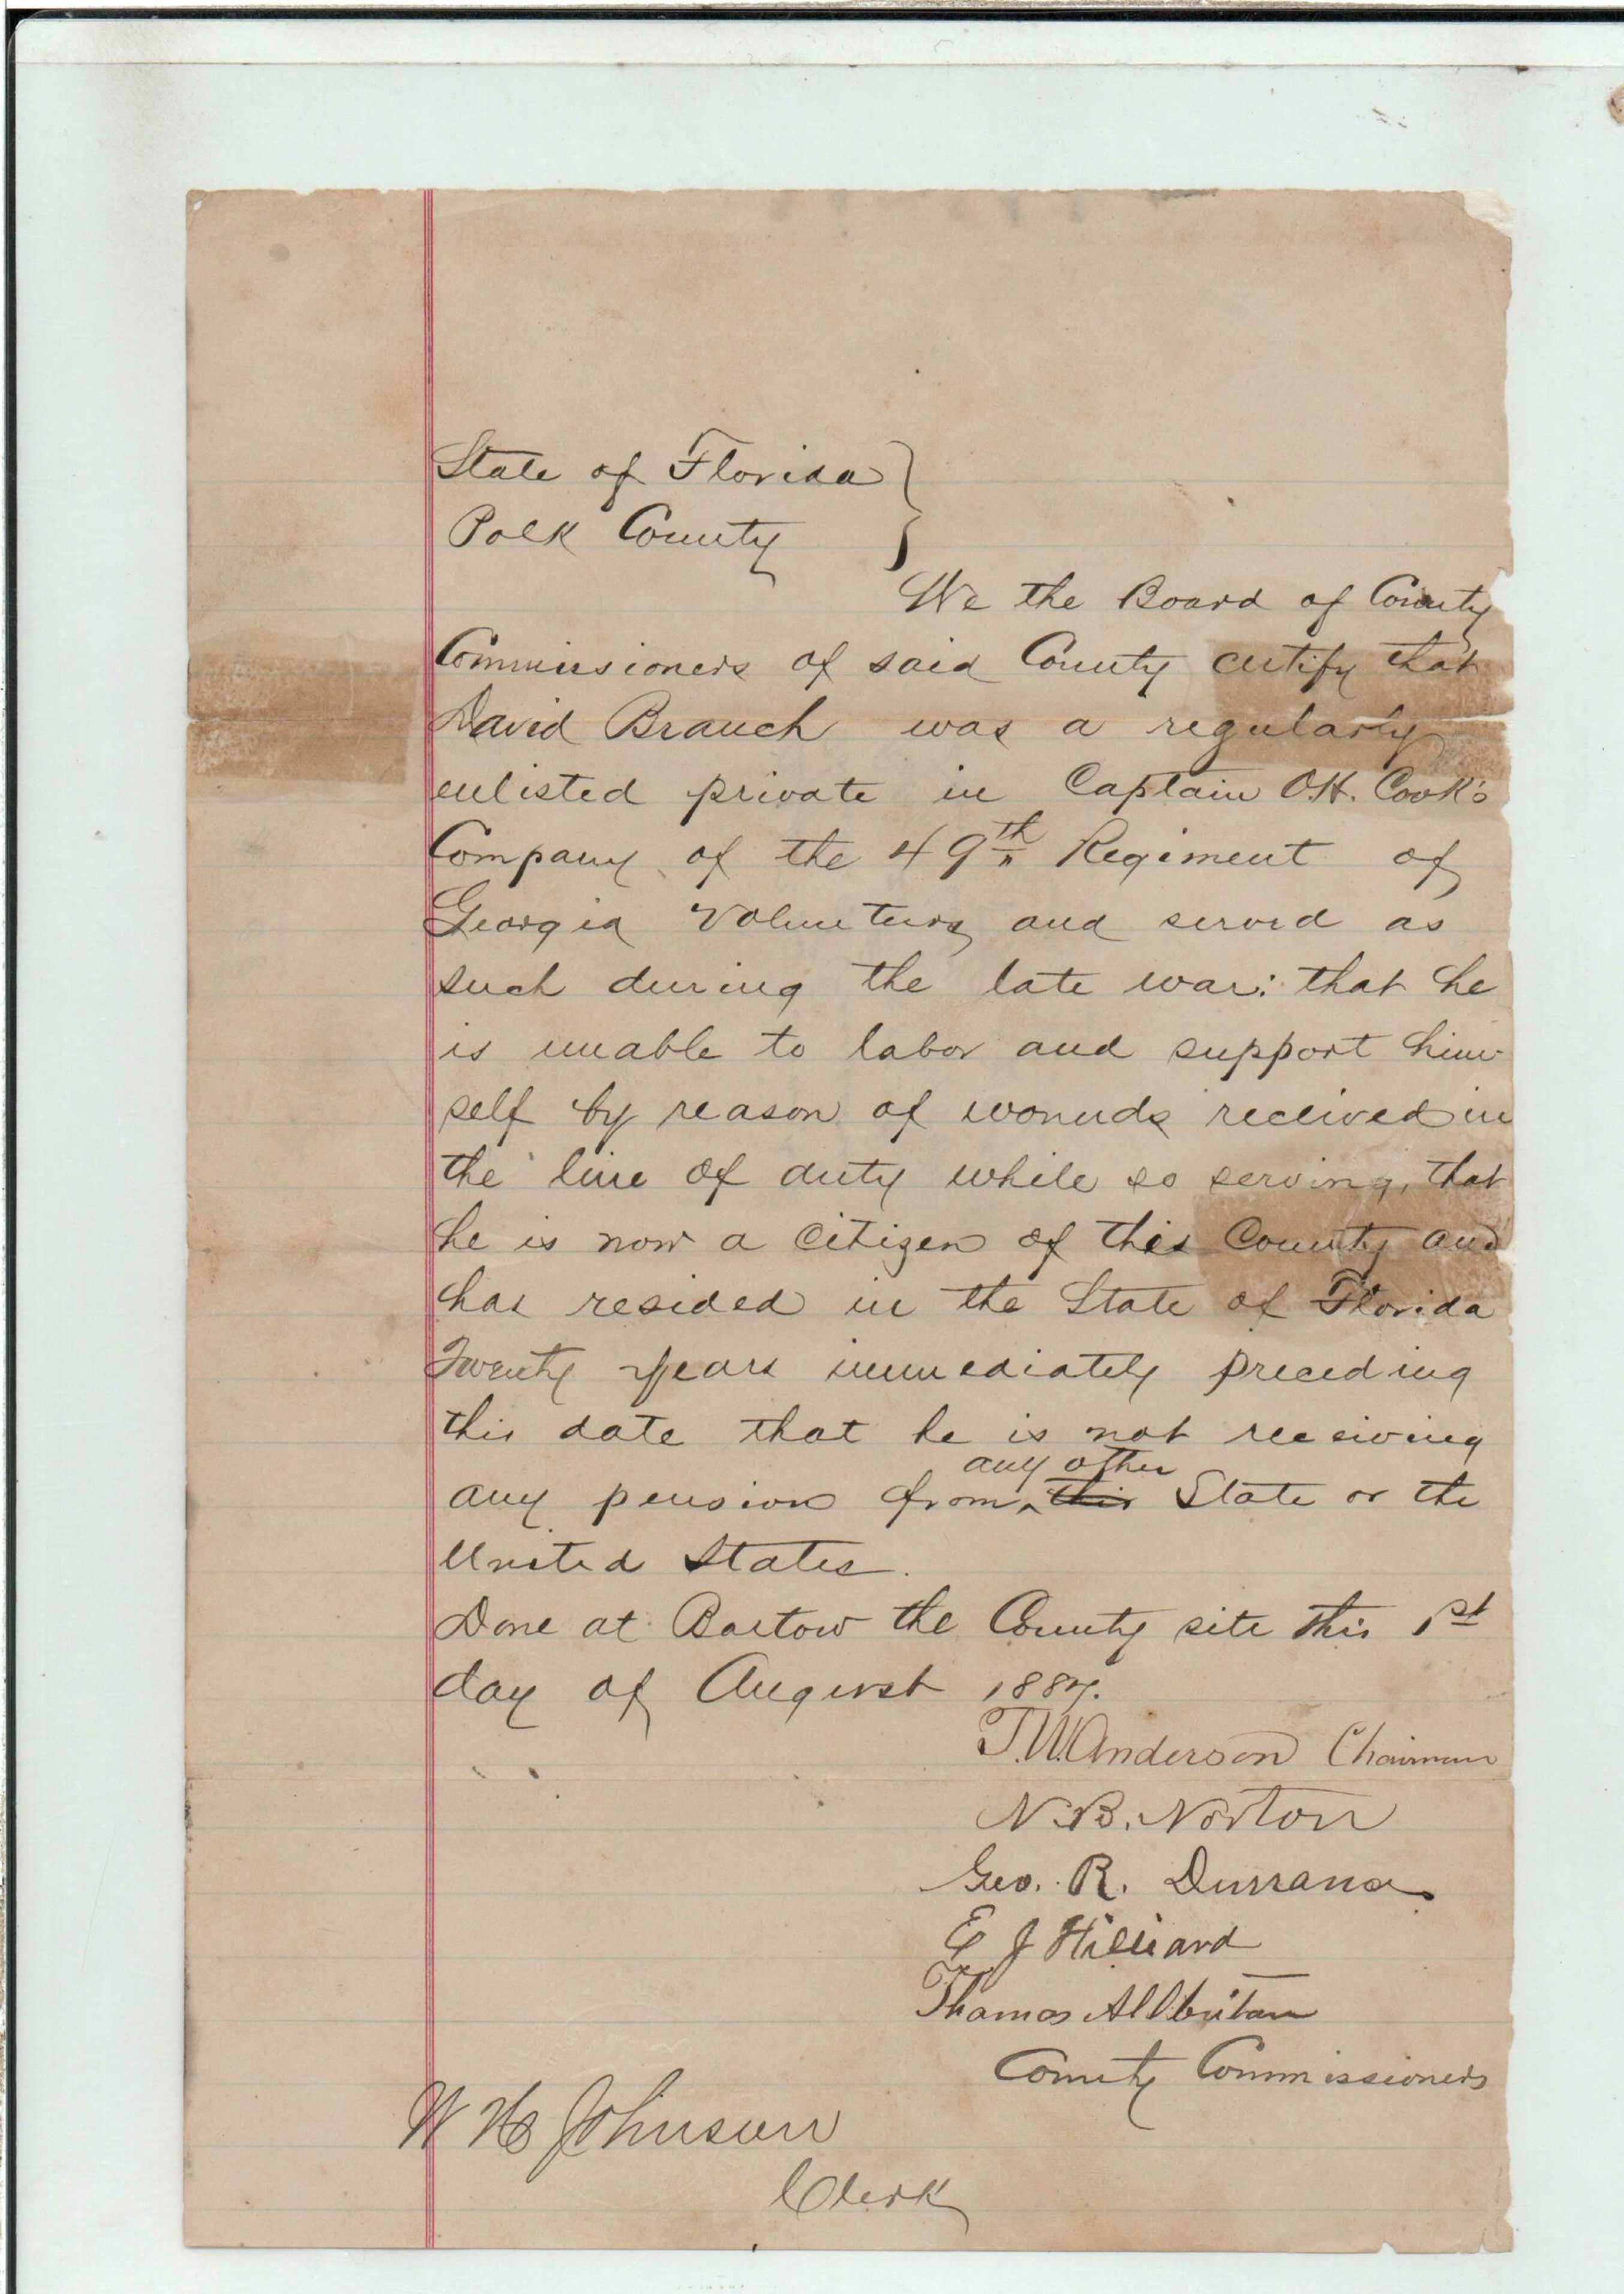 State of Florida }
Polk County }
We the Board of County
Commissioners of said County certify that
David Branch was a regularly
enlisted private in Captain O.H. Cook's
Company of the 49th Regiment of
Georgia Volunteers and served as
such during the late war: that he
is unable to labor and support him
self by reason of wounds received in
the line of duty while so serving, that
he is now a citizen of this County and
has resided in the State of Florida
Twenty years immediately preceding
this date that he is not receiving
any other
any pension from ^ this State or the
United States.
Done at Bartow the County site this 1st
day of August 1887.
T.W. Anderson Chairman
N.B. Norton
Geo. R. Durrance
E J Hilliard
Thomas Albritton
County Commissioners
W H Johnson
Clerk